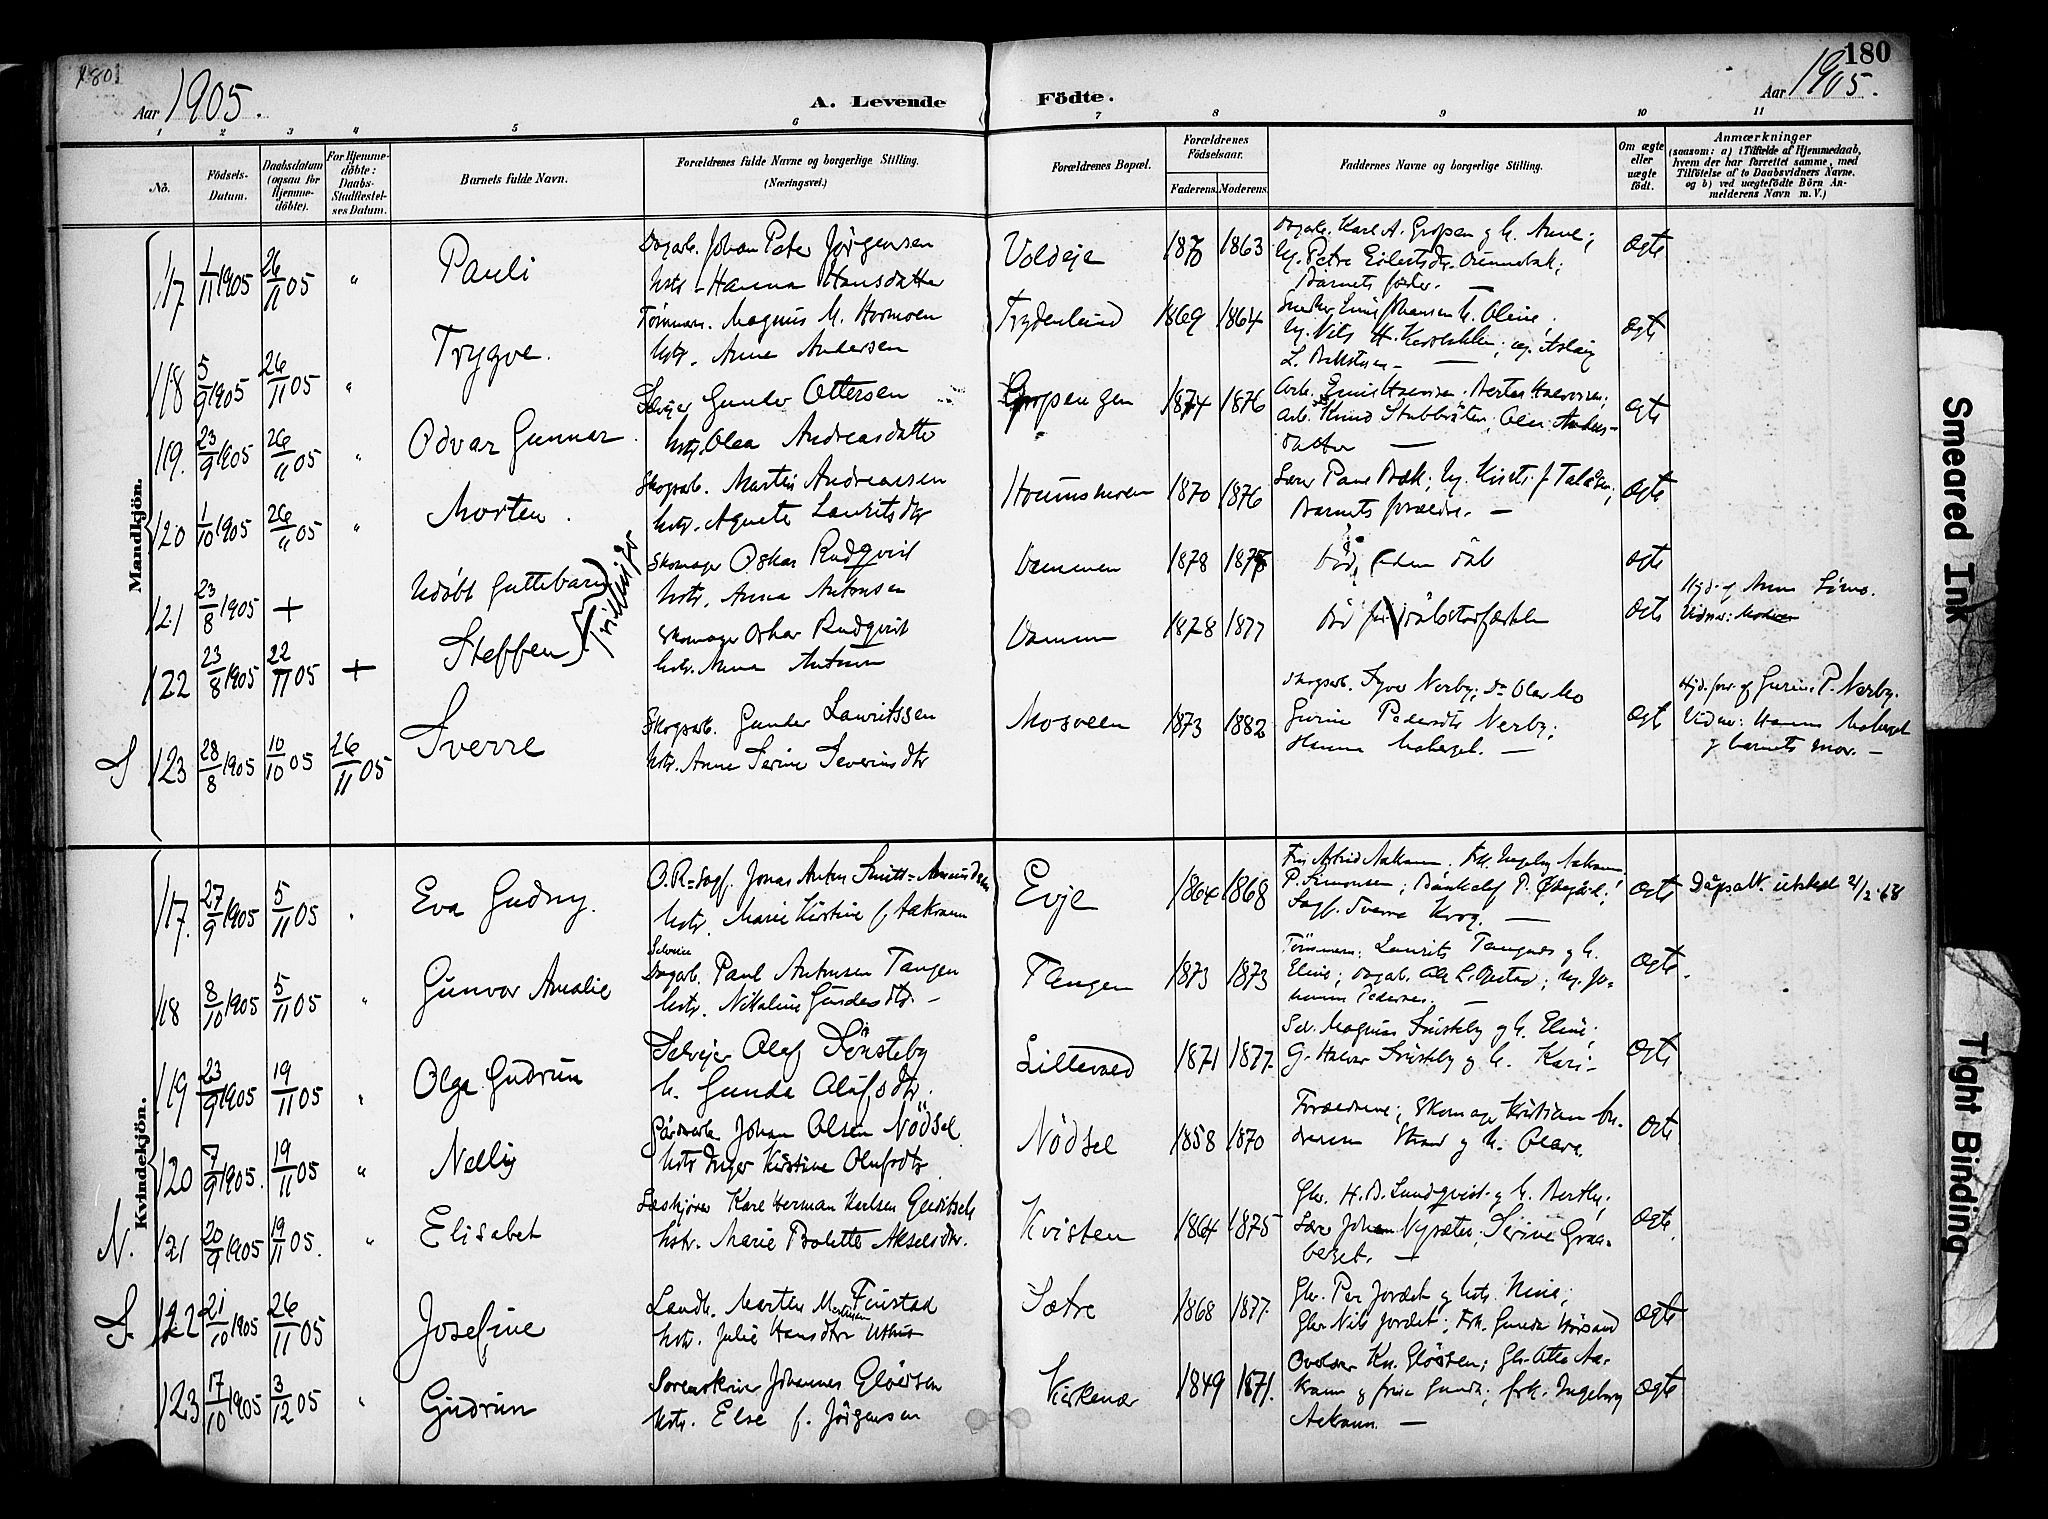 180
1905.
Aar
A. Levende Födte.
180
Aar 1905.
1 2 3 4 5 6 7 8 9 10 11
No.
Födsels-Datum.
Daabsdatum (ogsaa for Hjemme-döbte).
For Hjemme-döbte: Daabs-Stadfæstel-ses Datum.
Barnets fulde Navn.
Forældrenes fulde Navne og borgerlige Stilling. (Næringsvei.)
Forældrenes Bopæl.
Forældrenes Födselsaar.
Faderens. Moderens.
Faddernes Navne og borgerlige Stilling.
Om ægte eller uægte födt.
Anmærkninger
(saasom: a) i Tilfælde af Hjemmedaab,
hvem der har forrettet samme, med
Tilföielse af to Daabsvidners Navne.
og b) ved uægtefödte Börn An-
melderens Navn m. V.)
Mandkjön.
117 1/11 1905 26/11 05 " Pauli
Dagarb. Johan Peter Jörgensen
Hstr. Hanna Hansdatter
Voldeje 1870 1863
Dagarb. Karl A. Gropen g h. Anne;
Barnets fader. —
Ægte
118 5/9 1905 26/11 05 " Trygve.
Tömmerm. Magnus M. Hormoen
hstr. Anne Andersen
Frydenlund 1869 1864
Ægte
119. 23/9 1905 26/11 05 " Odvar Gunnar
Selvejer Gunder Ottersen
hstr. Olea Andreasdatter
Gropengen 1874 1876
arb. Knud Stubbråten, Olea Anders-
datter —
Ægte
120 1/10 1905 26/" 05 " Morten.
Skogsarb. Martin Andreassen
hstr. Agnete Lauritsdtr
1870 1876
Barnets forældre. —
Ægte
121 23/8 1905 + Udöbt Guttebarn
Tvillinger
Skomager Oskar Rudqvist
hstr. Anna Antonsen
Vammen 1878 1877
död uden dåb
Ægte
122 23/8 1905 22/11 05 + Steffen
Skomager Oskar Rudqvist
hstr. Anna Antonsen
Vammen 1878 1877
död før dåbstadfæstelsen
Ægte
Hjd. af Anna
Vidner:
S 123 28/8 1905 10/10 05 26/11 05 Sverre
Skogsarb. Gunder Lauritssen
hstr. Anne Serine Severinsdtr
Mosveen 1873 1882
Skogsarb. Syver Nerby; Do Olav Mo
Gurine Pedersdtr Nerby;
Hanna Moberget. —
Ægte
Hjd. forr. af Gurine P. Nerby.
Vidner: Hanna Moberget
g barnets mor. —
Kvindekjön.
117. 27/9 1905 5/11 05 Eva Gudny.
O.R=Sagf. Jonas Anton Smitt=Amundsen
hstr. Marie Kirstine f. Aakrann
Evje 1864 1868
Frk Astrid Aakrann, Frk. Ingeborg Aakrann
P. Simonsen; Bankchef P. Østgård;
Sagf. Sverre Krog. —
Ægte
Dåpsatt. utsted 21/2 -68
118 8/10 1905 5/11 05 " Gunvor Amalie
Selveier
Dagarb. Paul Antonsen Tangen
hstr. Nikoline Gundersdtr. —
Tangen 1873 1873
Tömmerm. Laurits Tangnes g h.
Eline; dagarb. Ole L. Opstad; ug. Jo-
hanna Pedersen. —
Ægte.
119 23/9 1905 19/11 05 " Olga Gudrun
Selvejer Olaf Sönsteby
h. Gunda Olafsdtr.
Lillevold 1871 1877.
Sel. Magnus Sönsteby g h. Eline;
G. Halvor Sönsteby g h. Kari —
Ægte
120 7/9 1905. 19/11 05 " Nelly
Gårdarb. Johan Olsen Nödsel
hstr. Inger Kristine Olufsdtr
Nödsel 1858 1870
Forældrene; Skomager Kristian An-
dersen Strand g h. Oleave.
Ægte
N. 121 20/9 1905 19/11 05. " Elisabet
Læskjörer Karl Herman Karlsen
hstr. Marie Bolette Akselsdtr.
Kvisten 1864 1875
Gbr. H. B. Lundqvist g h. Berthe;
Lærer Johan Nysæter, Serine Graa-
berget. —
Ægte.
S. 122 21/10 1905 26/11 05 Josefine
Landh. Morten Martinsen Finstad
hstr. Julie Hansdtr Uthus
Sætre 1868 1877.
Gbr. Per Jordet g hstr. Nina;
Gbr Nils Jordet; Frk. Gunda Hörsand
Ægte
123 17/10 1905 3/12 05 " Gudrun
Sorenskriver Johannes Glöersen
hstr. Else f. Jörgensen
Kirkenær 1849 1871.
Overlærer Kn. Glöersen; Gbr. Otto Aa-
krann g frue Gunda; frk. Ingeborg
Aakrann. —
Ægte
Smeared Ink
Tight Binding